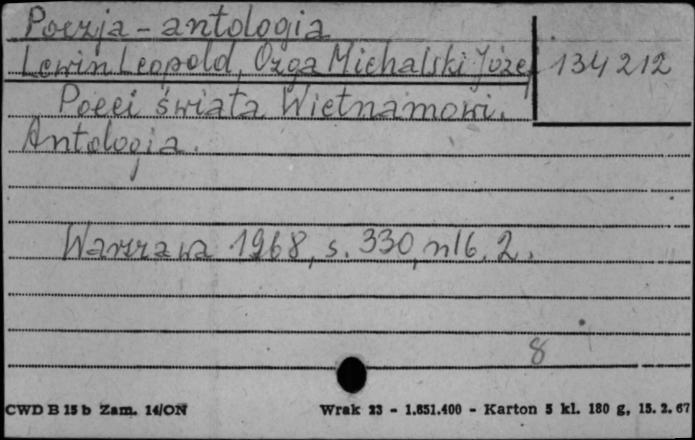 Poezja - antologia
Lewin Leopold, Ozga Michalski Józef 134 212
Poeci świata Wietnamowi.
Antologia.
Warszawa 1968, s. 330, nlb. 2.
8
CWD B 15 b Zam. 14/ON Wrak 23 - 1.851.400 - Karton 5 kl. 180 g, 15. 2. 67